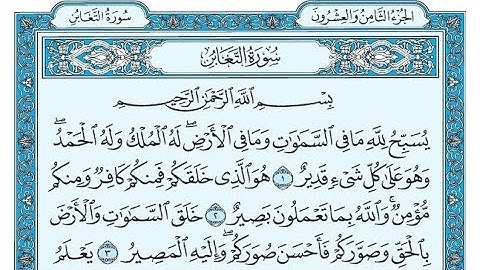 الجزء الثامن والعشرون
سورة التغابن
سُورَةُ التَّغَابُنِ
بِسْمِ اللَّهِ الرَّحْمَٰنِ الرَّحِيمِ
يُسَبِّحُ لِلَّهِ مَا فِي السَّمَاوَاتِ وَمَا فِي الْأَرْضِ ۖ لَهُ الْمُلْكُ وَلَهُ الْحَمْدُ ۖ
وَهُوَ عَلَىٰ كُلِّ شَيْءٍ قَدِيرٌ ١ هُوَ الَّذِي خَلَقَكُمْ فَمِنكُمْ كَافِرٌ وَمِنكُم
مُّؤْمِنٌ ۚ وَاللَّهُ بِمَا تَعْمَلُونَ بَصِيرٌ ٢ خَلَقَ السَّمَاوَاتِ وَالْأَرْضَ
بِالْحَقِّ وَصَوَّرَكُمْ فَأَحْسَنَ صُوَرَكُمْ ۖ وَإِلَيْهِ الْمَصِيرُ ٣ يَعْلَمُ